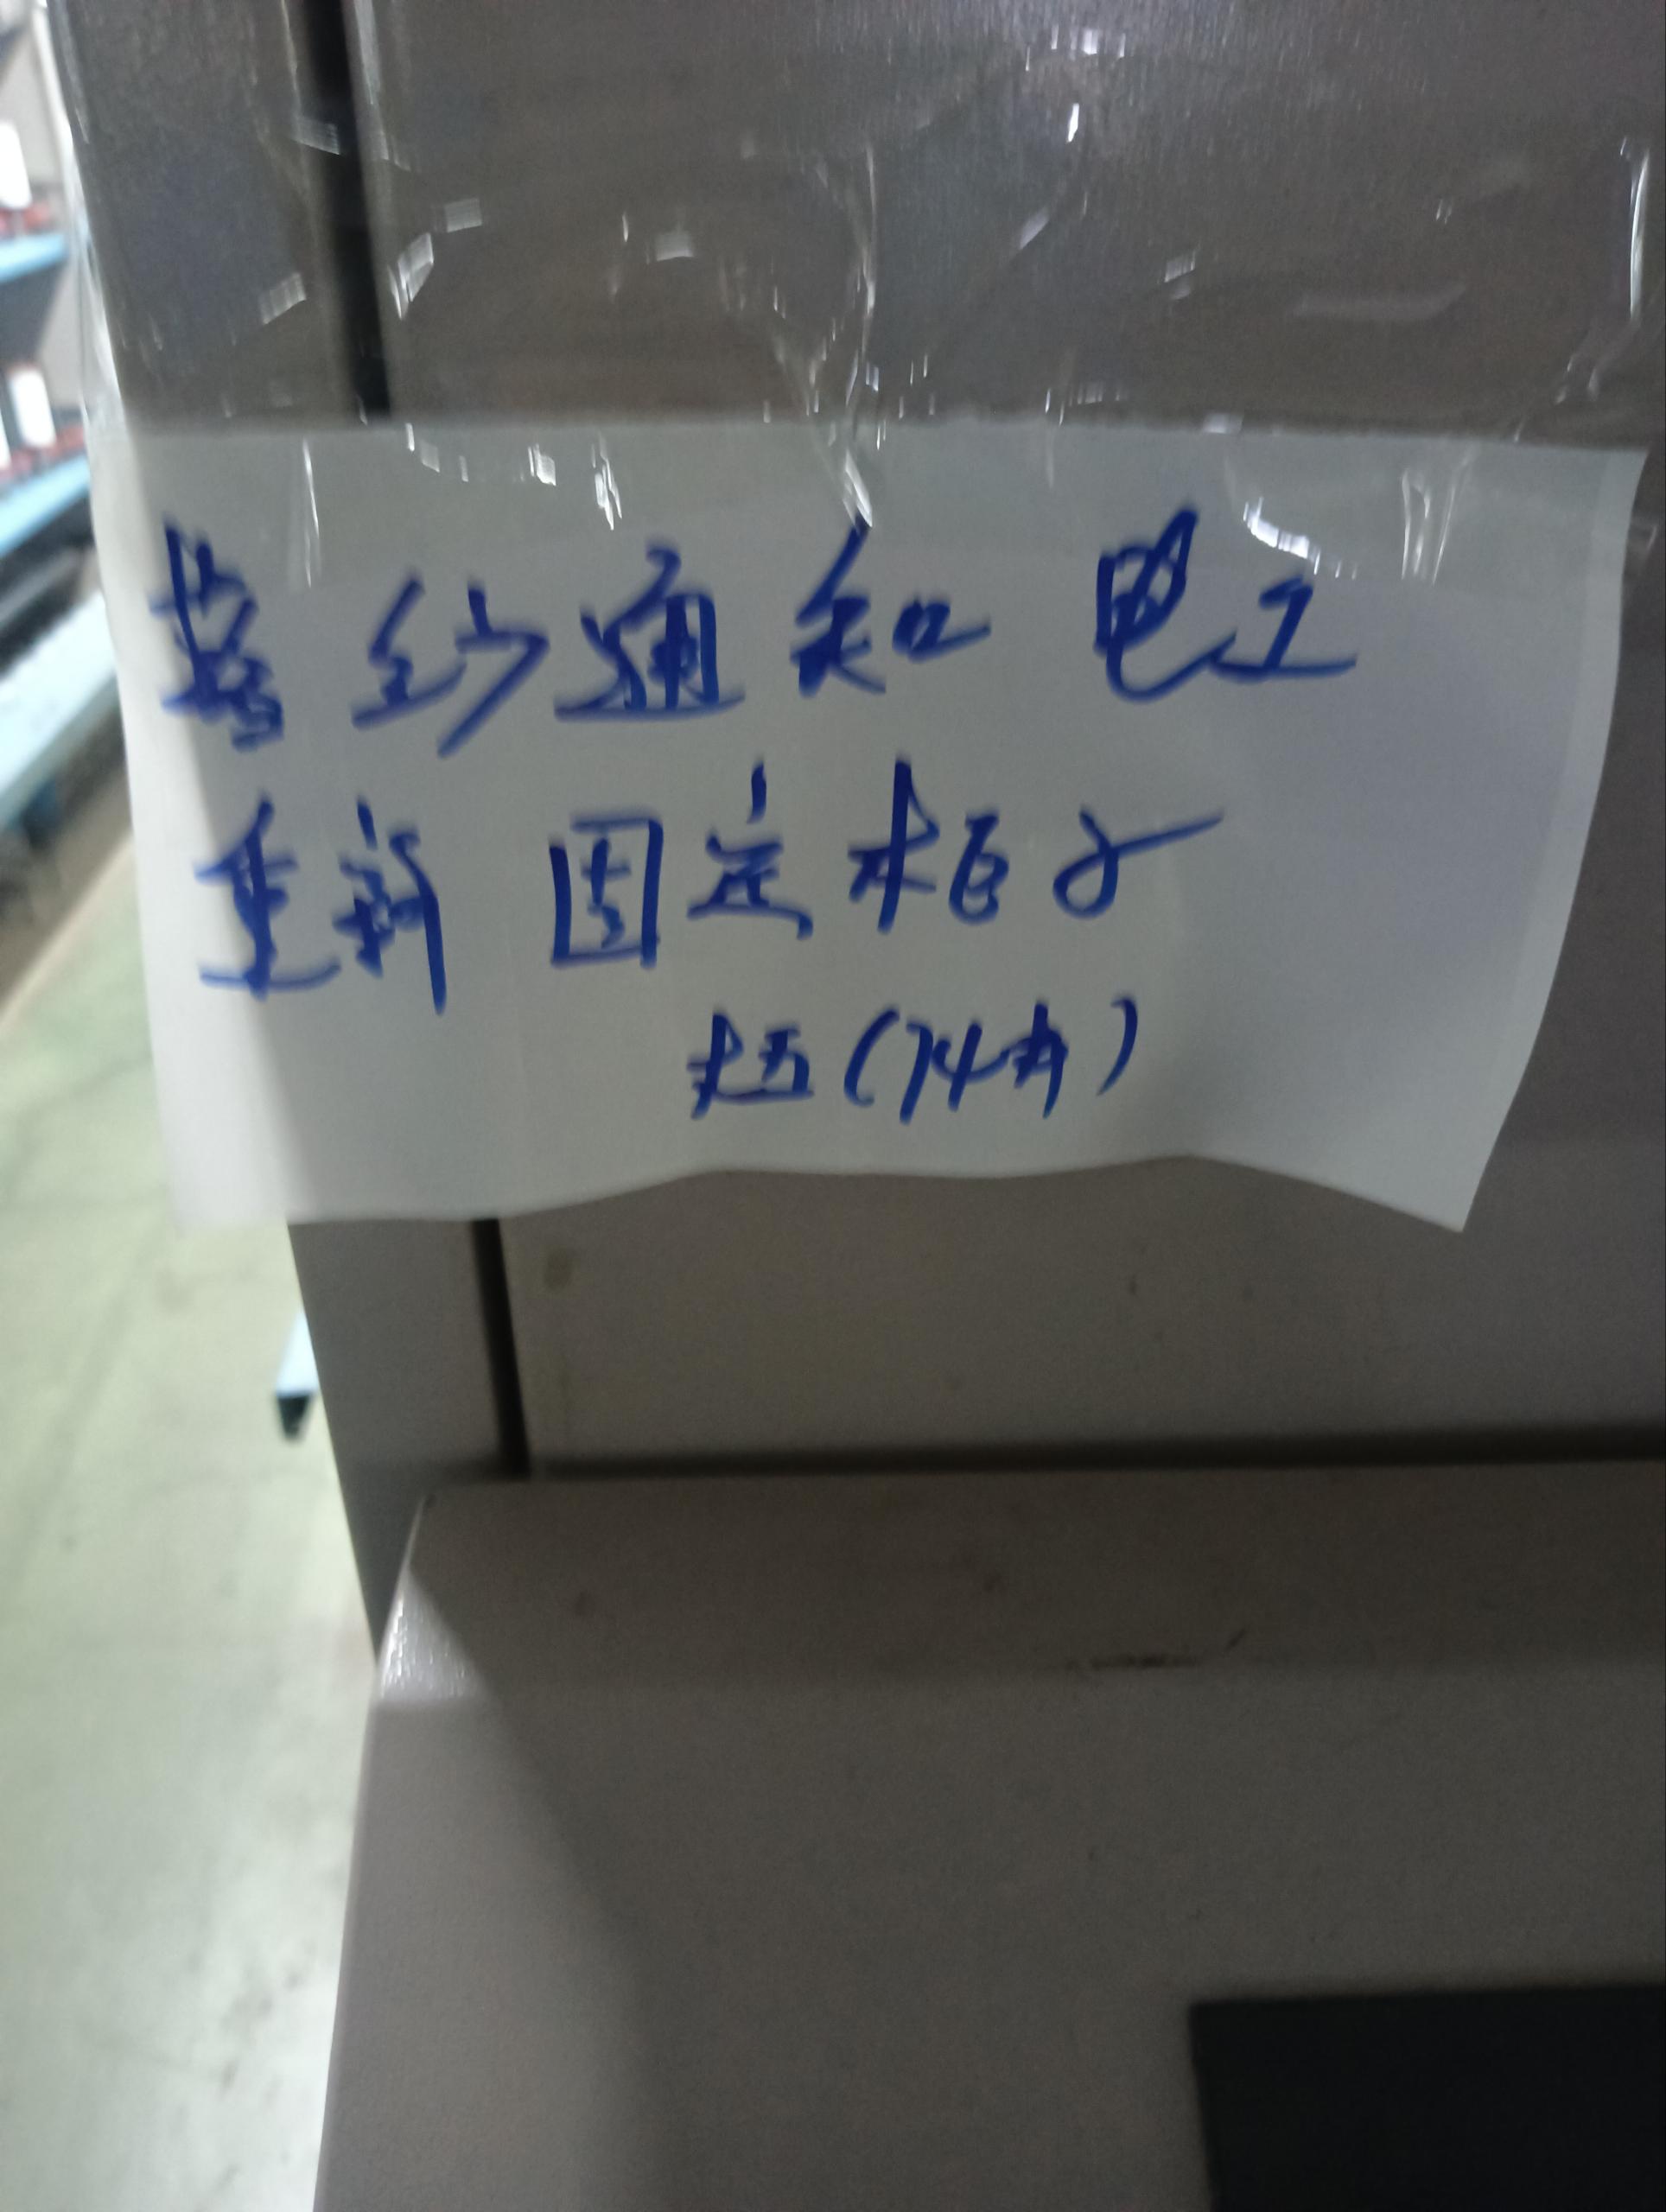 落纱通知电工
重新固定柜子
赵(74#)